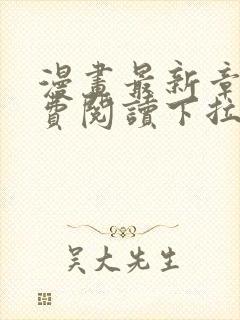 漫畫最新章
費閱讀下拉
吴大先生